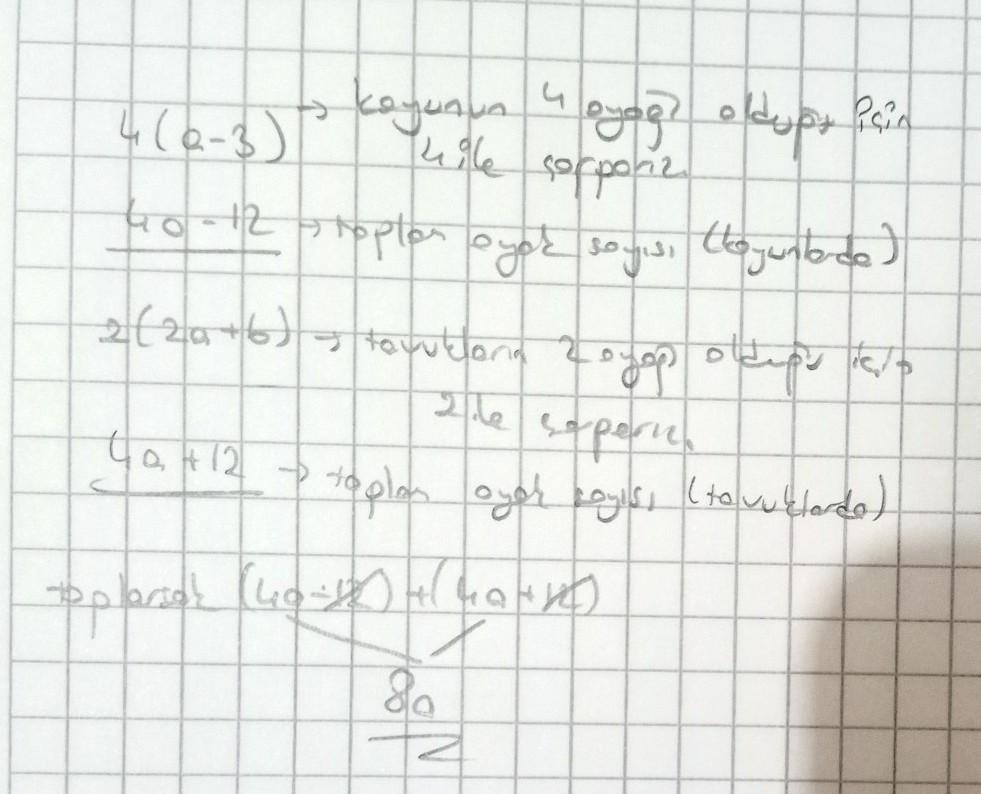 4(a-3) → koyunun 4 ayağı olduğu için
4 ile çarparız.
4a-12 → toplam ayak sayısı (koyunlarda)
2(2a+6) → tavukların 2 ayağı olduğu için
2 ile çarparız.
4a+12 → toplam ayak sayısı (tavuklarda)
toplarsak (4a-12)+(4a+12)
8a